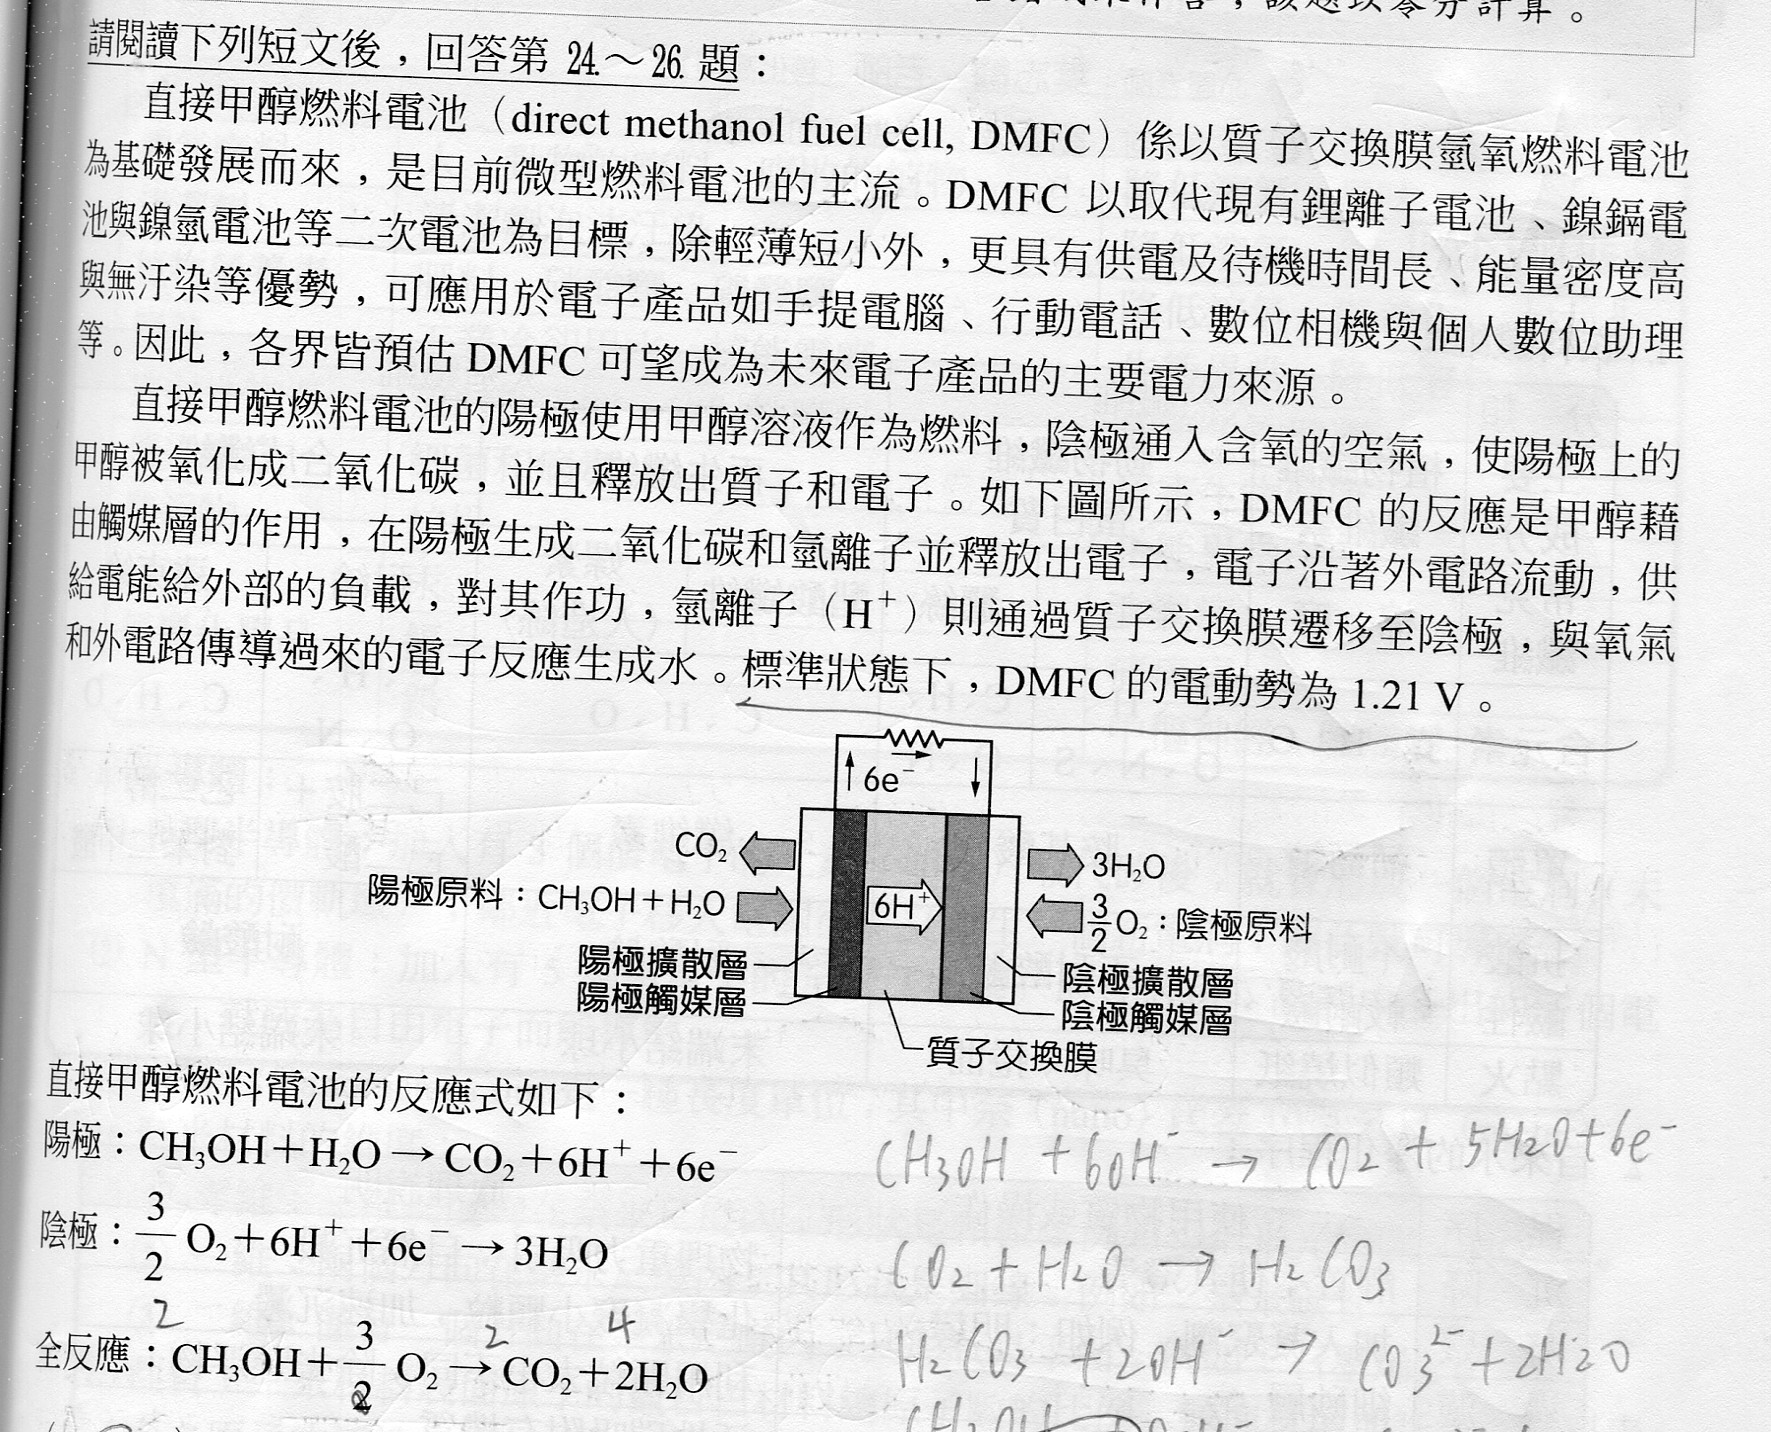 請閱讀下列短文後，回答第 24.～26. 題：
直接甲醇燃料電池（direct methanol fuel cell, DMFC）係以質子交換膜氫氧燃料電池
為基礎發展而來，是目前微型燃料電池的主流。DMFC 以取代現有鋰離子電池、鎳鎘電
池與鎳氫電池等二次電池為目標，除輕薄短小外，更具有供電及待機時間長、能量密度高
與無汙染等優勢，可應用於電子產品如手提電腦、行動電話、數位相機與個人數位助理
等。因此，各界皆預估 DMFC 可望成為未來電子產品的主要電力來源。
直接甲醇燃料電池的陽極使用甲醇溶液作為燃料，陰極通入含氧的空氣，使陽極上的
甲醇被氧化成二氧化碳，並且釋放出質子和電子。如下圖所示，DMFC 的反應是甲醇藉
由觸媒層的作用，在陽極生成二氧化碳和氫離子並釋放出電子，電子沿著外電路流動，供
給電能給外部的負載，對其作功，氫離子（H⁺）則通過質子交換膜遷移至陰極，與氧氣
和外電路傳導過來的電子反應生成水。標準狀態下，DMFC 的電動勢為 1.21 V。
6e⁻
CO₂
3H₂O
陽極原料：CH₃OH＋H₂O
6H⁺
3/2 O₂：陰極原料
陽極擴散層
陰極擴散層
陽極觸媒層
陰極觸媒層
質子交換膜
直接甲醇燃料電池的反應式如下：
陽極：CH₃OH＋H₂O→CO₂＋6H⁺＋6e⁻
CH3OH + 6OH⁻ → CO2 + 5H2O + 6e⁻
陰極：3/2 O₂＋6H⁺＋6e⁻→3H₂O
CO2 + H2O → H2CO3
2 2 4
全反應：CH₃OH＋3/2 O₂→CO₂＋2H₂O
H2CO3 + 2OH⁻ → CO3²⁻ + 2H2O